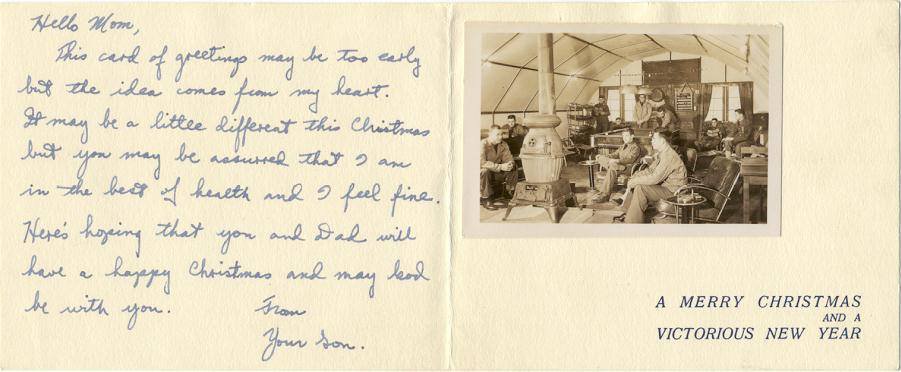 Hello Mom,
This card of greetings may be too early
but the idea comes from my heart.
It may be a little different this Christmas
but you may be assurred that I am
in the best of health and I feel fine.
Here's hoping that you and Dad will
have a happy Christmas and may God
be with you.
From
Your Son.
A MERRY CHRISTMAS
AND A
VICTORIOUS NEW YEAR